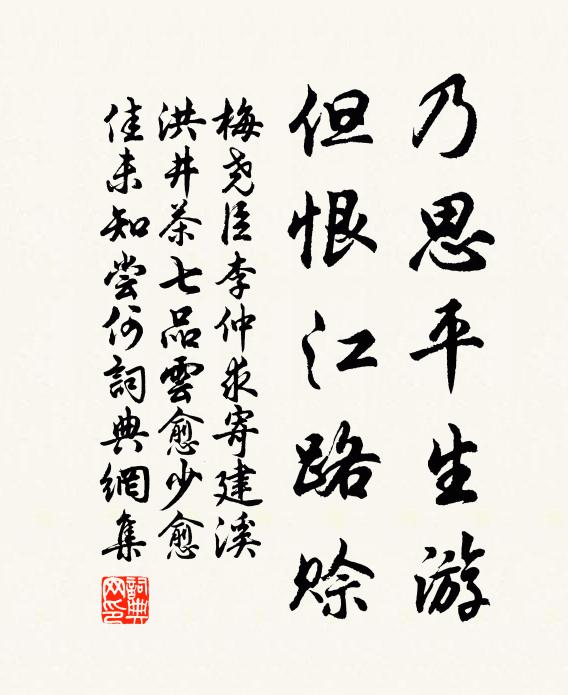 乃思平生游
但恨江路赊
梅尧臣李仲求寄建溪
洪井茶七品雲愈少愈
佳未知尝何詞典網集
詞典网印